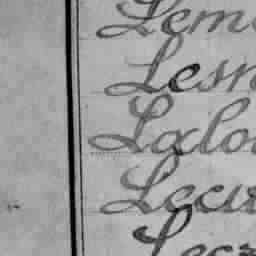 Lem
Lesn
Lalo
Lecu
Lecz